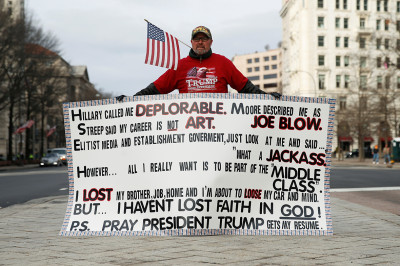 TRUMP
HILLARY CALLED ME DEPLORABLE. MOORE DESCRIBED ME AS
STREEP SAID MY CAREER IS NOT ART. JOE BLOW.
ELITIST MEDIA AND ESTABLISHMENT GOVERNMENT, JUST LOOK AT ME AND SAID ....
"WHAT A JACKASS."
HOWEVER... ALL I REALLY WANT IS TO BE PART OF THE MIDDLE
CLASS"
I LOST MY BROTHER, JOB, HOME AND I'M ABOUT TO LOOSE MY CAR AND MIND.
BUT... I HAVENT LOST FAITH IN GOD!
P.S. PRAY PRESIDENT TRUMP GETS MY RESUME.